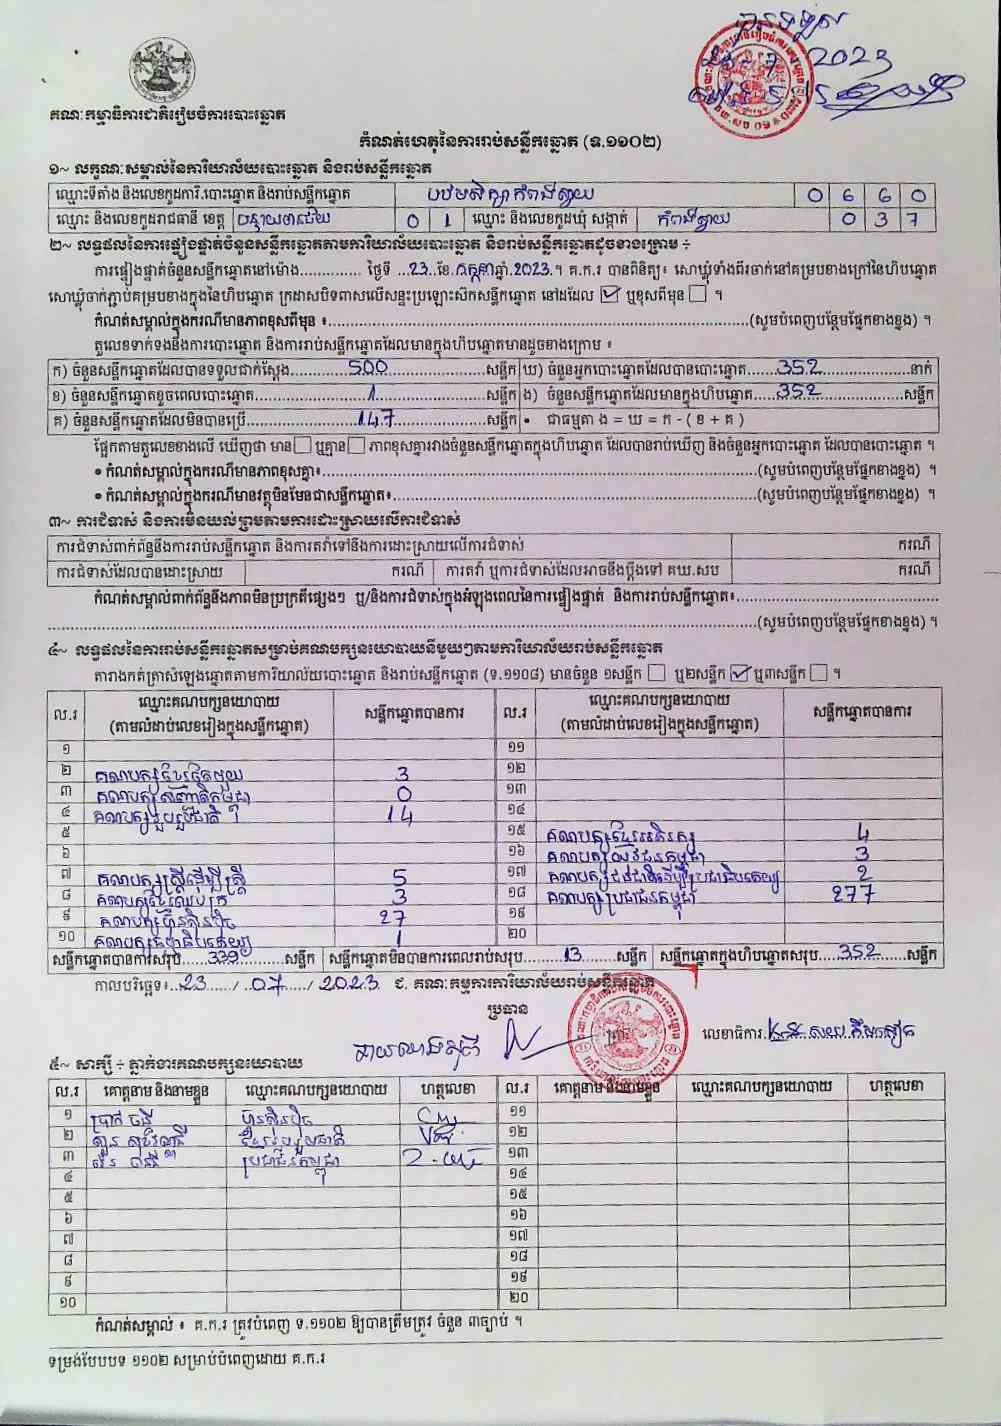 2023
គណៈកម្មាធិការជាតិរៀបចំការបោះឆ្នោត
កំណត់ហេតុនៃការរាប់សន្លឹកឆ្នោត (ទ.១១០២)
១~ លក្ខណៈសម្គាល់នៃការិយាល័យបោះឆ្នោត និងរាប់សន្លឹកឆ្នោត
ឈ្មោះទីតាំង និងលេខកូដការិ.បោះឆ្នោត និងរាប់សន្លឹកឆ្នោត បឋមសិក្សាកំពង់ស្វាយ 0 6 6 0
ឈ្មោះ និងលេខកូដរាជធានី ខេត្ត បន្ទាយមានជ័យ 0 1 ឈ្មោះ និងលេខកូដឃុំ សង្កាត់ កំពង់ស្វាយ 0 3 7
២~ លទ្ធផលនៃការផ្ទៀងផ្ទាត់ចំនួនសន្លឹកឆ្នោតតាមការិយាល័យបោះឆ្នោត និងរាប់សន្លឹកឆ្នោតដូចខាងក្រោម ÷
ការផ្ទៀងផ្ទាត់ចំនួនសន្លឹកឆ្នោតនៅម៉ោង.............. ថ្ងៃទី ..23..ខែ.កក្កដាឆ្នាំ.2023.។ គ.ក.រ បានពិនិត្យ៖ សោឃ្លុំទាំងពីរចាក់នៅគម្របខាងក្រៅនៃហិបឆ្នោត
សោឃ្លុំចាក់ភ្ជាប់គម្របខាងក្នុងនៃហិបឆ្នោត ក្រដាសបិទពាសលើសន្ទះប្រឡោះសឹកសន្លឹកឆ្នោត នៅដដែល ☑ ឬខុសពីមុន ☐ ។
កំណត់សម្គាល់ក្នុងករណីមានភាពខុសពីមុន ៖......(សូមបំពេញបន្ថែមផ្នែកខាងខ្នង) ។
តួលេខទាក់ទងនឹងការបោះឆ្នោត និងការរាប់សន្លឹកឆ្នោតដែលមានក្នុងហិបឆ្នោតមានដូចខាងក្រោម ៖
ក) ចំនួនសន្លឹកឆ្នោតដែលបានទទួលជាក់ស្តែង......500......សន្លឹក ឃ) ចំនួនអ្នកបោះឆ្នោតដែលបានបោះឆ្នោត......352......នាក់
ខ) ចំនួនសន្លឹកឆ្នោតខូចពេលបោះឆ្នោត......1......សន្លឹក ង) ចំនួនសន្លឹកឆ្នោតដែលមានក្នុងហិបឆ្នោត......352......សន្លឹក
គ) ចំនួនសន្លឹកឆ្នោតដែលមិនបានប្រើ......147......សន្លឹក • ជាធម្មតា ង = ឃ = ក - ( ខ + គ )
ផ្អែកតាមតួលេខខាងលើ ឃើញថា មាន☐ ឬគ្មាន☐ ភាពខុសគ្នារវាងចំនួនសន្លឹកឆ្នោតក្នុងហិបឆ្នោត ដែលបានរាប់ឃើញ និងចំនួនអ្នកបោះឆ្នោត ដែលបានបោះឆ្នោត ។
• កំណត់សម្គាល់ក្នុងករណីមានភាពខុសគ្នា៖......(សូមបំពេញបន្ថែមផ្នែកខាងខ្នង) ។
• កំណត់សម្គាល់ក្នុងករណីមានវត្ថុមិនមែនជាសន្លឹកឆ្នោត៖......(សូមបំពេញបន្ថែមផ្នែកខាងខ្នង) ។
៣~ ការជំទាស់ និងការមិនយល់ព្រមតាមការដោះស្រាយលើការជំទាស់
ការជំទាស់ពាក់ព័ន្ធនឹងការរាប់សន្លឹកឆ្នោត និងការតវ៉ាទៅនឹងការដោះស្រាយលើការជំទាស់ ករណី
ការជំទាស់ដែលបានដោះស្រាយ ករណី ការតវ៉ា ឬការជំទាស់ដែលអាចនឹងប្តឹងទៅ គឃ.សប ករណី
កំណត់សម្គាល់ពាក់ព័ន្ធនឹងភាពមិនប្រក្រតីផ្សេងៗ ឬ/និងការជំទាស់ក្នុងអំឡុងពេលនៃការផ្ទៀងផ្ទាត់ និងការរាប់សន្លឹកឆ្នោត៖......
......(សូមបំពេញបន្ថែមផ្នែកខាងខ្នង) ។
៤~ លទ្ធផលនៃការរាប់សន្លឹកឆ្នោតសម្រាប់គណបក្សនយោបាយនីមួយៗតាមការិយាល័យរាប់សន្លឹកឆ្នោត
តារាងកត់ត្រាសំឡេងឆ្នោតតាមការិយាល័យបោះឆ្នោត និងរាប់សន្លឹកឆ្នោត (ទ.១១០៨) មានចំនួន ១សន្លឹក ☐ ឬ២សន្លឹក ☑ ឬ៣សន្លឹក ☐ ។
ល.រ ឈ្មោះគណបក្សនយោបាយ (តាមលំដាប់លេខរៀងក្នុងសន្លឹកឆ្នោត) សន្លឹកឆ្នោតបានការ ល.រ ឈ្មោះគណបក្សនយោបាយ (តាមលំដាប់លេខរៀងក្នុងសន្លឹកឆ្នោត) សន្លឹកឆ្នោតបានការ
១ ១១
២ គណបក្សខ្មែរតែមួយ 3 ១២
៣ គណបក្សសញ្ជាតិកម្ពុជា 0 ១៣
៤ គណបក្សរួបរួមជាតិ 14 ១៤
៥ ១៥ គណបក្សខ្មែរអភិរក្ស 4
៦ ១៦ គណបក្សយុវជនកម្ពុជា 3
៧ គណបក្សស្ត្រីដើម្បីស្ត្រី 5 ១៧ គណបក្សជនជាតិដើមប្រជាធិបតេយ្យ 2
៨ 3 ១៨ គណបក្សប្រជាជនកម្ពុជា 277
៩ គណបក្សហ៊្វុនស៊ិនប៉ិច 27 ១៩
១០ គណបក្សធម្មាធិបតេយ្យ 1 ២០
សន្លឹកឆ្នោតបានការសរុប.....339......សន្លឹក សន្លឹកឆ្នោតមិនបានការពេលរាប់សរុប......13......សន្លឹក សន្លឹកឆ្នោតក្នុងហិបឆ្នោតសរុប.....352.....សន្លឹក
កាលបរិច្ឆេទ៖..23...../..07...../ 2023 ជ. គណៈកម្មការការិយាល័យរាប់សន្លឹកឆ្នោត
ប្រធាន
លេខាធិការ.
៥~ សាក្សី ÷ ភ្នាក់ងារគណបក្សនយោបាយ
ល.រ គោត្តនាម និងនាមខ្លួន ឈ្មោះគណបក្សនយោបាយ ហត្ថលេខា ល.រ គោត្តនាម និងនាមខ្លួន ឈ្មោះគណបក្សនយោបាយ ហត្ថលេខា
១ ប្រាក់ ចន្នី ហ៊្វុនស៊ិនប៉ិច ១១
២ ១២
៣ ប្រជាជនកម្ពុជា ១៣
៤ ១៤
៥ ១៥
៦ ១៦
៧ ១៧
៨ ១៨
៩ ១៩
១០ ២០
កំណត់សម្គាល់ ៖ គ.ក.រ ត្រូវបំពេញ ទ.១១០២ ឱ្យបានត្រឹមត្រូវ ចំនួន ៣ច្បាប់ ។
ទម្រង់បែបបទ ១១០២ សម្រាប់បំពេញដោយ គ.ក.រ